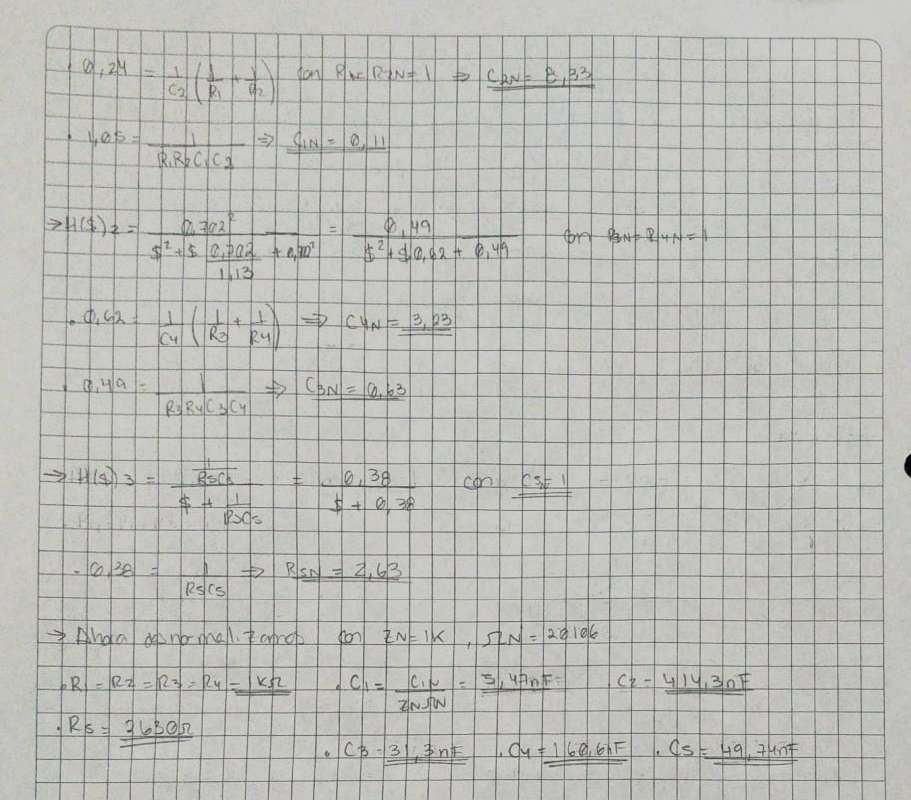 . 0,24 = 1/C2 (1/R1 + 1/R2) con R1N=R2N=1 ⇒ C2N = 8,33
. 1,05 = 1/(R1R2C1C2) ⇒ C1N = 0,11
→ H($)2 = 0,702²/($² + $ 0,702/1,13 + 0,702²) = 0,49/($² + $0,62 + 0,49) con R3N=R4N=1
. 0,62 = 1/C4 (1/R3 + 1/R4) ⇒ C4N = 3,23
. 0,49 = 1/(R3R4C3C4) ⇒ C3N = 0,63
→ H($)3 = (1/R5C5)/($ + 1/R5C5) = 0,38/($ + 0,38) con C5=1
. 0,38 = 1/(R5C5) ⇒ R5N = 2,63
→ Ahora desnormalizamos con ZN=1K, ΩN=20106
. R1 = R2 = R3 = R4 = 1KΩ . C1 = C1N/(ZNΩN) = 5,47nF . C2 = 414,3nF
. R5 = 2630Ω
. C3 = 31,3nF . C4 = 160,6nF . C5 = 49,74nF